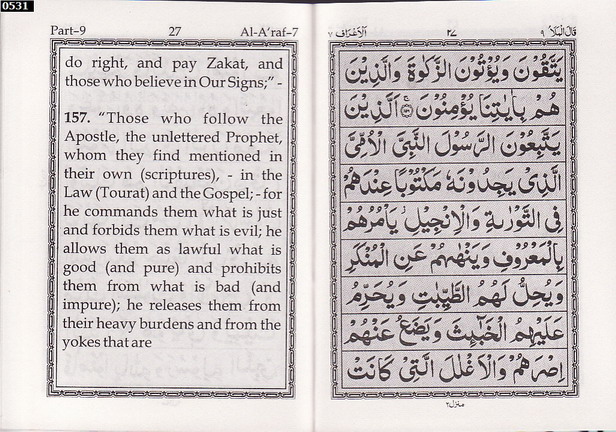 0531
Part-9 27 Al-A'raf-7
do right, and pay Zakat, and
those who believe in Our Signs;" -
157. "Those who follow the
Apostle, the unlettered Prophet,
whom they find mentioned in
their own (scriptures), - in the
Law (Tourat) and the Gospel; - for
he commands them what is just
and forbids them what is evil; he
allows them as lawful what is
good (and pure) and prohibits
them from what is bad (and
impure); he releases them from
their heavy burdens and from the
yokes that are
اَلْاَعْرَاف ٧ ٢٧ قَالَ الْمَلَأُ ٩
يَتَّقُوْنَ وَيُؤْتُوْنَ الزَّكٰوةَ وَالَّذِيْنَ
هُمْ بِاٰيٰتِنَا يُؤْمِنُوْنَ ۝ اَلَّذِيْنَ
يَتَّبِعُوْنَ الرَّسُوْلَ النَّبِيَّ الْاُمِّيَّ
الَّذِيْ يَجِدُوْنَهٗ مَكْتُوْبًا عِنْدَهُمْ
فِي التَّوْرٰىةِ وَالْاِنْجِيْلِ يَاْمُرُهُمْ
بِالْمَعْرُوْفِ وَيَنْهٰىهُمْ عَنِ الْمُنْكَرِ
وَيُحِلُّ لَهُمُ الطَّيِّبٰتِ وَيُحَرِّمُ
عَلَيْهِمُ الْخَبٰٓئِثَ وَيَضَعُ عَنْهُمْ
اِصْرَهُمْ وَالْاَغْلٰلَ الَّتِيْ كَانَتْ
منزل ٢